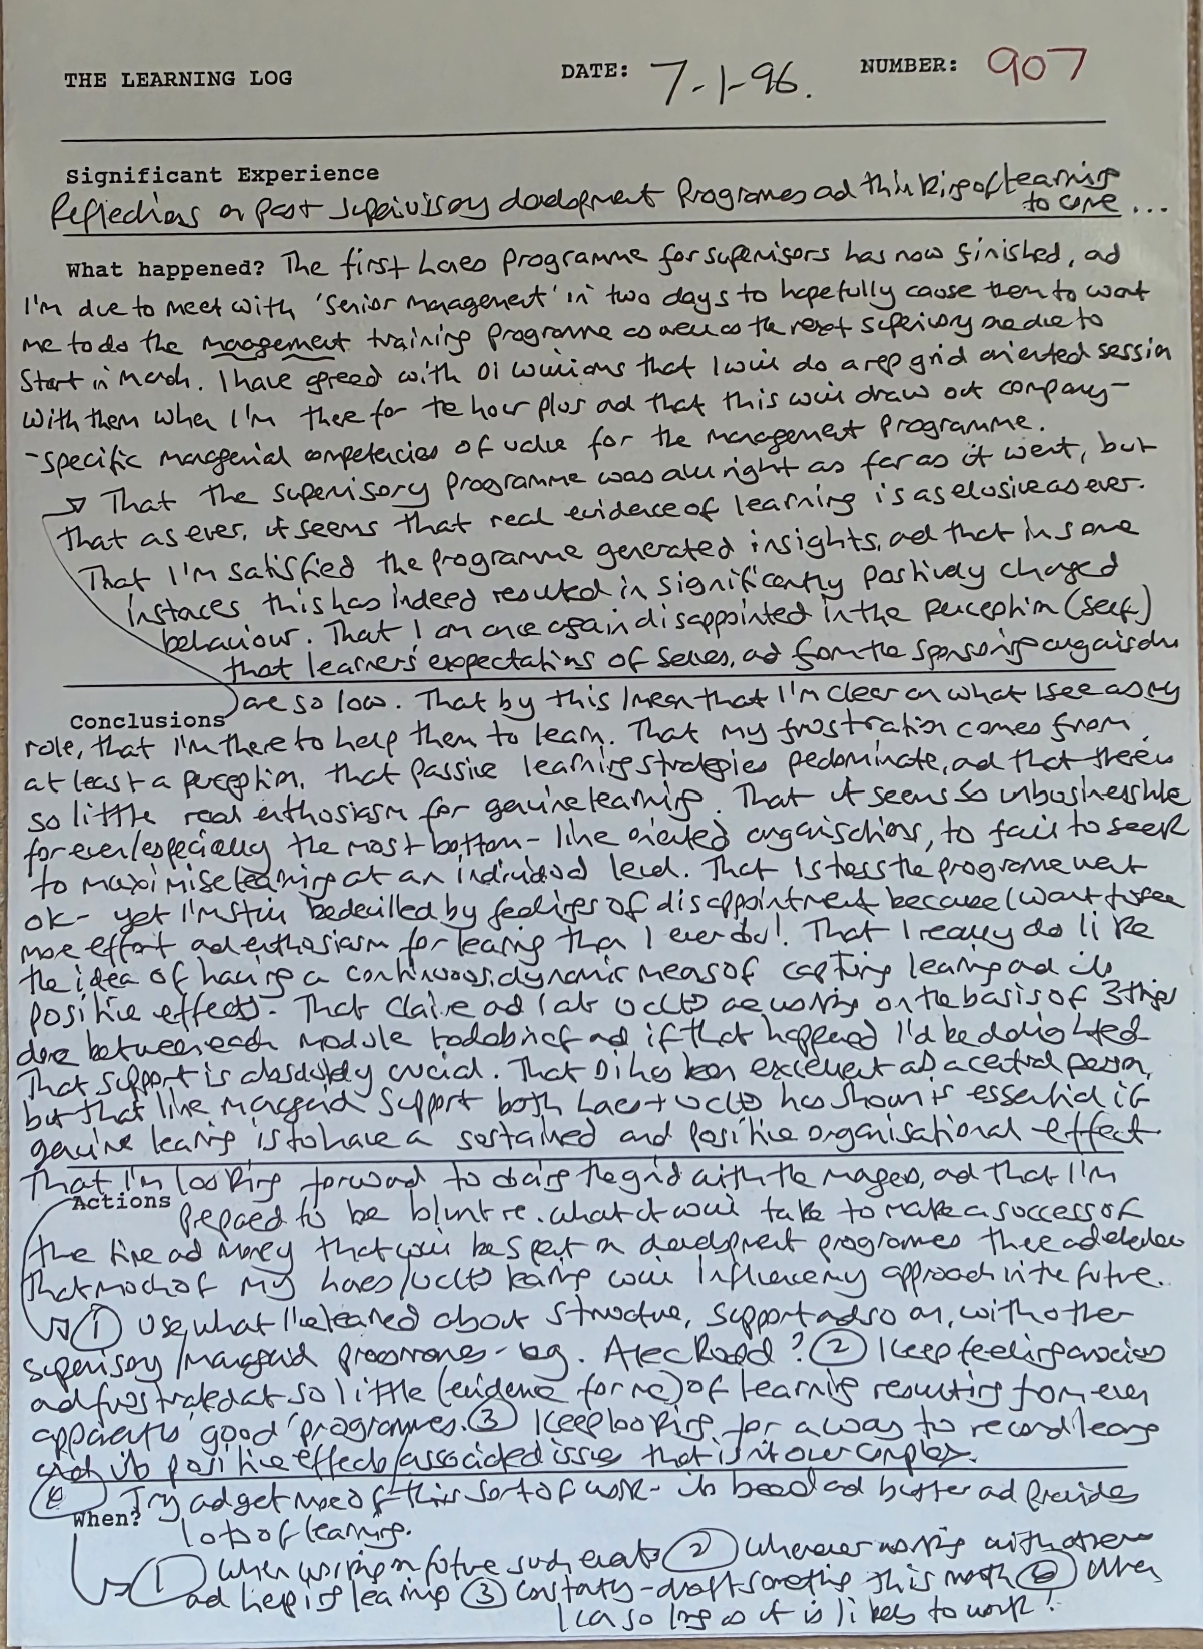 THE LEARNING LOG DATE: 7-1-96. NUMBER: 907
Significant Experience
Reflections on past supervisory development programmes ad thinking of learning
to come ...
What happened? The first Laes programme for supervisors has now finished, ad
I'm due to meet with 'senior management' in two days to hopefully cause them to want
me to do the management training programme as well as the next supervisory one due to
Start in March. I have agreed with Di Williams that I will do a rep grid oriented session
with them when I'm there for the hour plus ad that this will draw out company-
-specific managerial competencies of value for the management programme.
That the supervisory programme was all right as far as it went, but
that as ever, it seems that real evidence of learning is as elusive as ever.
That I'm satisfied the programme generated insights, ad that in some
instances this has indeed resulted in significantly positively changed
behaviour. That I am once again disappointed in the perception (self)
that learners' expectations of selves, ad from the sponsoring organisation
are so low. That by this I mean that I'm clear on what I see as my
Conclusions
role, that I'm there to help them to learn. That my frustration comes from,
at least a perception, that passive learning strategies predominate, ad that there is
so little real enthusiasm for genuine learning. That it seems so unbusinesslike
for even/especially the most bottom-line oriented organisations, to fail to seek
to maximise learning at an individual level. That I stress the programme went
ok - yet I'm still bedevilled by feelings of disappointment because I want to see
more effort ad enthusiasm for learning than I ever do! That I really do like
the idea of having a continuous, dynamic means of capturing learning ad its
positive effects. That Claire ad I at are working on the basis of 3 things
done between each module ad if that happened I'd be delighted.
That support is absolutely crucial. That Di has been excellent as a central person,
but that line managerial support both Laes + has shown is essential if
genuine learning is to have a sustained and positive organisational effect.
That I'm looking forward to doing the grid with the managers, ad that I'm
Actions
prepared to be blunt re. what it will take to make a success of
the time ad money that will be spent on development programmes there ad elsewhere
That much of my Laes/ learning will influence my approach in the future.
① Use what I've learned about structure, support ad so on, with other
supervisory/managerial programmes - e.g. Alec ? ② Keep feeling anxious
ad frustrated at so little (evidence for me) of learning resulting from even
apparently 'good' programmes. ③ Keep looking for a way to record learning
and its positive effects/associated issues that isn't over complex.
Try ad get more of this sort of work - its bread ad butter ad provides
When?
lots of learning.
① When working on future such events ② Whenever working with others
ad helping learning ③ Constantly - draft something this month When
I can so long as it is likely to work!